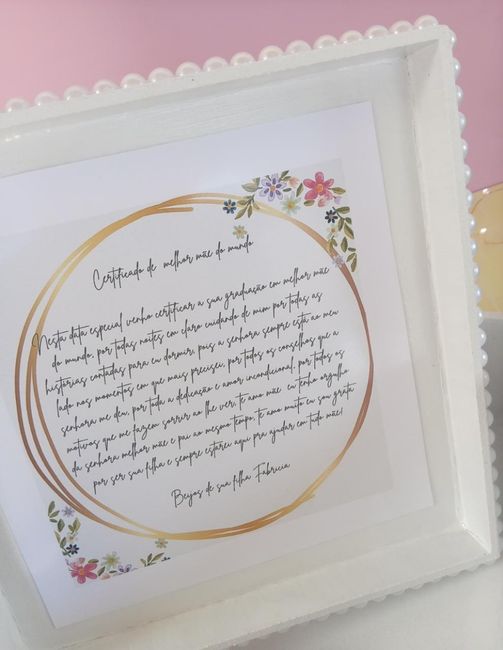 Certificado de melhor mãe do mundo
Nesta data especial venho certificar a sua graduação em melhor mãe
do mundo, por todas noites em claro cuidando de mim por todas as
histórias contadas para eu dormir, pois a senhora sempre está ao meu
lado nos momentos em que mais precisei, por todos os conselhos que a
senhora me deu, por toda a dedicação e amor incondicional, por todos os
motivos que me fazem sorrir ao lhe ver, te amo mãe eu tenho orgulho
da senhora melhor mãe e pai ao mesmo tempo, te amo muito eu sou grata
por ser sua filha e sempre estarei aqui pra ajudar em tudo mãe!
Beijos de sua filha Fabricia